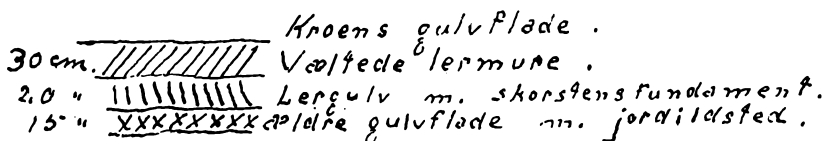 Kroens gulvflade.
30 cm. Væltede lermure.
20 " Lergulv m. skorstensfundament.
15 " ældre gulvflade m. jordildsted.